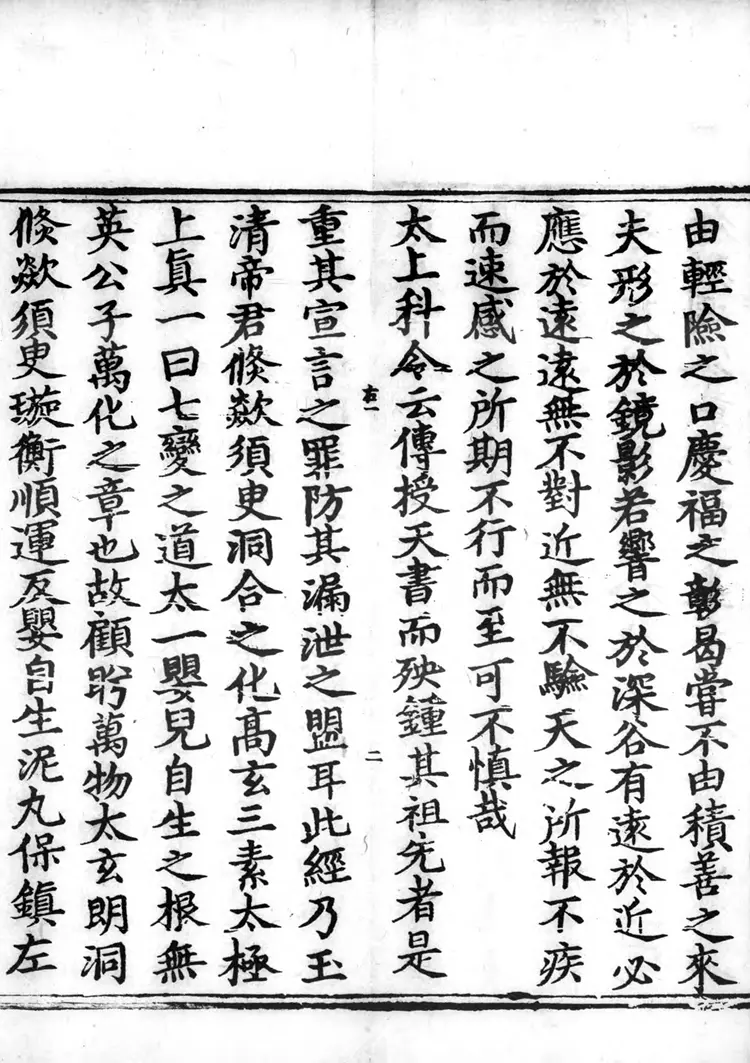 由輕險之口慶福之彰曷嘗不由積善之來
夫形之於鏡影若響之於深谷有遠於近必
應於遠遠無不對近無不驗天之所報不疾
而速感之所期不行而至可不慎哉
太上科令云傳授天書而殃鍾其祖先者是
右一
二
重其宣言之罪防其漏泄之盟耳此經乃玉
清帝君倏欻須臾洞合之化高玄三素太極
上真一曰七變之道太一嬰兒自生之根無
英公子萬化之章也故顧眄萬物太玄朗洞
倏欻須臾璇衡順運及嬰自生泥丸保鎮左